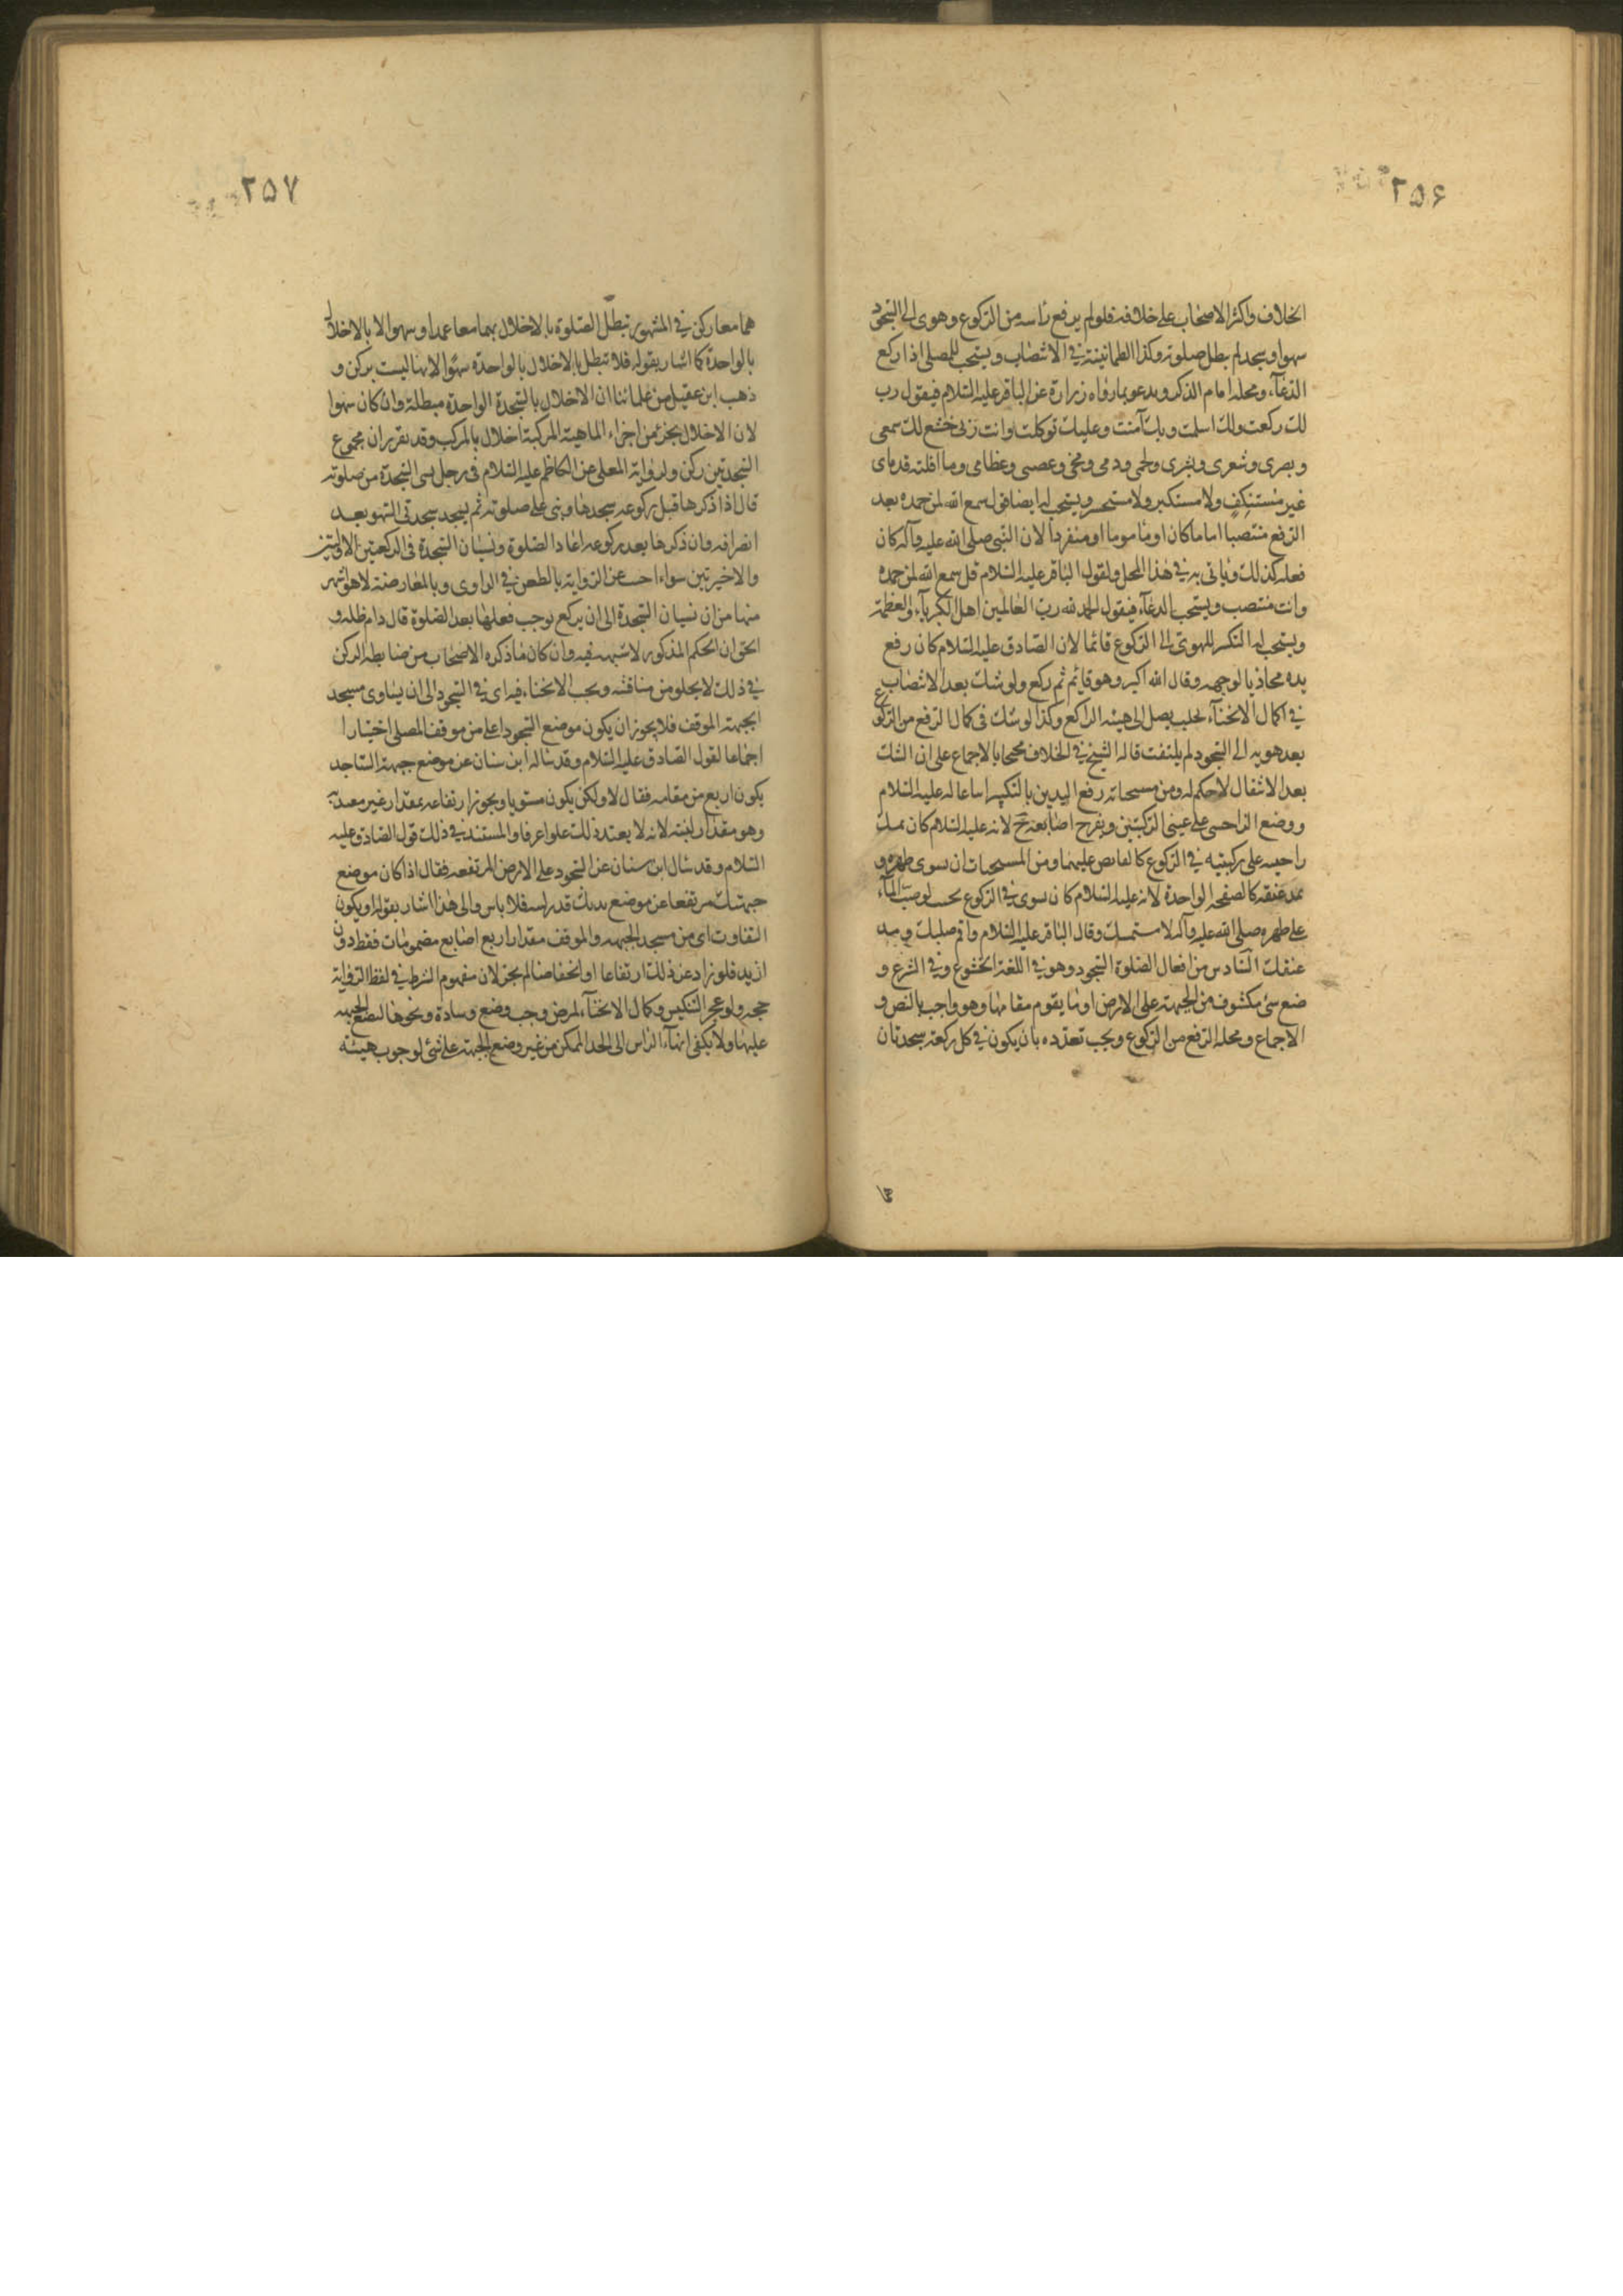 ٢٥۶
الخلاف واكثر الاصحاب على خلافه فلو لم يرفع راسه من الركوع وهوى الى السجود
سهوا وسجد لم يبطل صلوته وكذا الطمانينة في الانتصاب ويستحب للمصلى اذا ركع
الدعآء ومحله امام الذكر ويدعو بما رواه زرارة عن الباقر عليه السلام فيقول رب
لك ركعت ولك اسلمت وبك آمنت وعليك توكلت وانت ربى خشع لك سمعى
وبصرى وشعرى وبشرى ولحمى ودمى ومخى وعصبى وعظامى وما اقلته قدماى
غير مستنكف ولا مستكبر ولا مستحسر ويستحب له ايضا قول سمع الله لمن حمده بعد
الرفع منتصبا اماما كان او ماموما او منفردا لان النبى صلى الله عليه وآله كان
فعله كذلك وياتى به في هذا المحل ولقول الباقر عليه السلام قل سمع الله لمن حمده
وانت منتصب ويستحب الدعآء فيقول الحمد لله رب العالمين اهل الكبريآء والعظمة
ويستحب له التكبير للهوى الى الركوع قائما لان الصادق عليه السلام كان رفع
يده محاذيا لوجهه وقال الله اكبر وهو قايم ثم ركع ولو شك بعد الانتصاب
في اكمال الانحنآء بحيث يصل الى هيئة الراكع وكذا لو شك فى كمال الرفع من الركوع
بعد هويه الى السجود لم يلتفت قاله الشيخ في الخلاف محتجا بالاجماع على ان الشك
بعد الانتقال لا حكم له ومن مستحباته رفع اليدين بالتكبير اتباعا له عليه السلام
ووضع الراحتين على عينى الركبتين وتفرج اصابعه ح لانه عليه السلام كان يمسك
راحتيه على ركبتيه في الركوع كالقابض عليهما ومن المستحبات ان يسوى ظهره و
يمد عنقه كالصفحة الواحدة لانه عليه السلام كان يسوى في الركوع بحيث لو صب المآء
على ظهره صلى الله عليه وآله لاستمسك وقال الباقر عليه السلام واقم صلبك ومد
عنقك السادس من افعال الصلوة السجود وهو في اللغة الخشوع وفي الشرع و
ضع شئ مكشوف من الجبهة على الارض او ما يقوم مقامها وهو واجب بالنص و
الاجماع ومحله الرفع من الركوع ويجب تعدده بان يكون في كل ركعة سجدتان
٢٥٧
هما معا ركن في المشهور تبطل الصلوة بالاخلال بهما معا عمدا وسهوا لا بالاخلال
بالواحدة كما اشار بقوله فلا تبطل بالاخلال بالواحدة سهوا لانها ليست بركن و
ذهب ابن عقيل من علمائنا ان الاخلال بالسجدة الواحدة مبطلة وان كان سهوا
لان الاخلال بجزء من اجزاء الماهية المركبة اخلال بالمركب وقد تقرر ان مجموع
السجدتين ركن ولرواية المعلى عن الكاظم عليه السلام فى رجل نسى السجدة من صلوته
قال اذا ذكرها قبل ركوعه سجدها وبنى على صلوته ثم يسجد سجدتى السهو بعد
انصرافه وان ذكرها بعد ركوعه اعاد الصلوة ونسيان السجدة فى الركعتين الاوليين
والاخيرتين سواء اجيب عن الرواية بالطعن في الراوى وبالمعارضة لاهو اشهر
منها من ان نسيان السجدة الى ان يركع يوجب فعلها بعد الصلوة قال دام ظله و
الحق ان الحكم المذكور لا شبهة فيه وان كان ما ذكره الاصحاب من ضابطه الركن
في ذلك لا يخلو من مناقشه ويجب الانحناء فيه اى في السجود الى ان يساوى مسجد
الجبهة الموقف فلا يجوز ان يكون موضع السجود اعلى من موقف المصلى اختيارا
اجماعا لقول الصادق عليه السلام وقد ساله ابن سنان عن موضع جبهة الساجد
يكون ارفع من مقامه فقال لا ولكن يكون مستويا ويجوز ارتفاعه بمقدار غير معتد به
وهو مقدار لبنة لانه لا يعتد ذلك علوا عرفا والمستند في ذلك قول الصادق عليه
السلام وقد سال ابن سنان عن السجود على الارض المرتفعة فقال اذا كان موضع
جبهتك مرتفعا عن موضع بدنك قدر لبنة فلا باس والى هذا اشار بقوله او يكون
التفاوت اى من مسجد الجبهة والموقف مقدار اربع اصابع مضمومات فقط دون
ازيد فلو زاد عن ذلك ارتفاعا او انخفاضا لم يجز لان مفهوم الشرط في لفظ الرواية
حجة ولو عجز التنكيس وكمال الانحنآء لمرض وجب وضع وسادة ونحوها ليضع الجبهة
عليها ولا يكفى انهآء الراس الى الحد الممكن من غير وضع الجبهة على شئ لوجوب هيئة